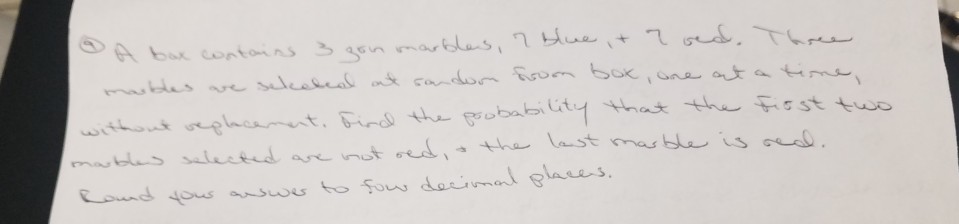 ⑨ A box contains 3 grn marbles, 7 blue, + 7 red. Three
marbles are selected at random from box, one at a time,
without replacement. Find the probability that the first two
marbles selected are not red, & the last marble is red.
Round your answer to four decimal places.